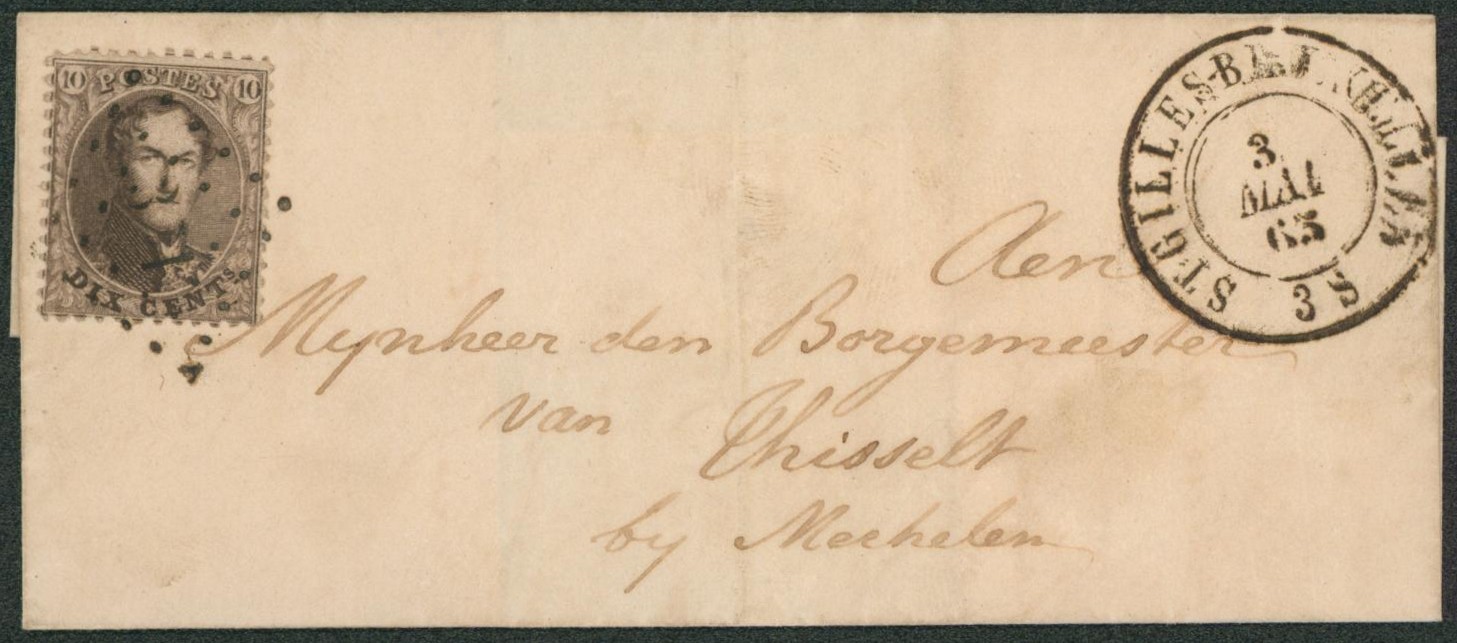 10 POSTES 10
DIX CENTS
ST GILLES-B
3
MAI
65
3 S
Aen
Mynheer den Borgemeester
van Thisselt
by Mechelen